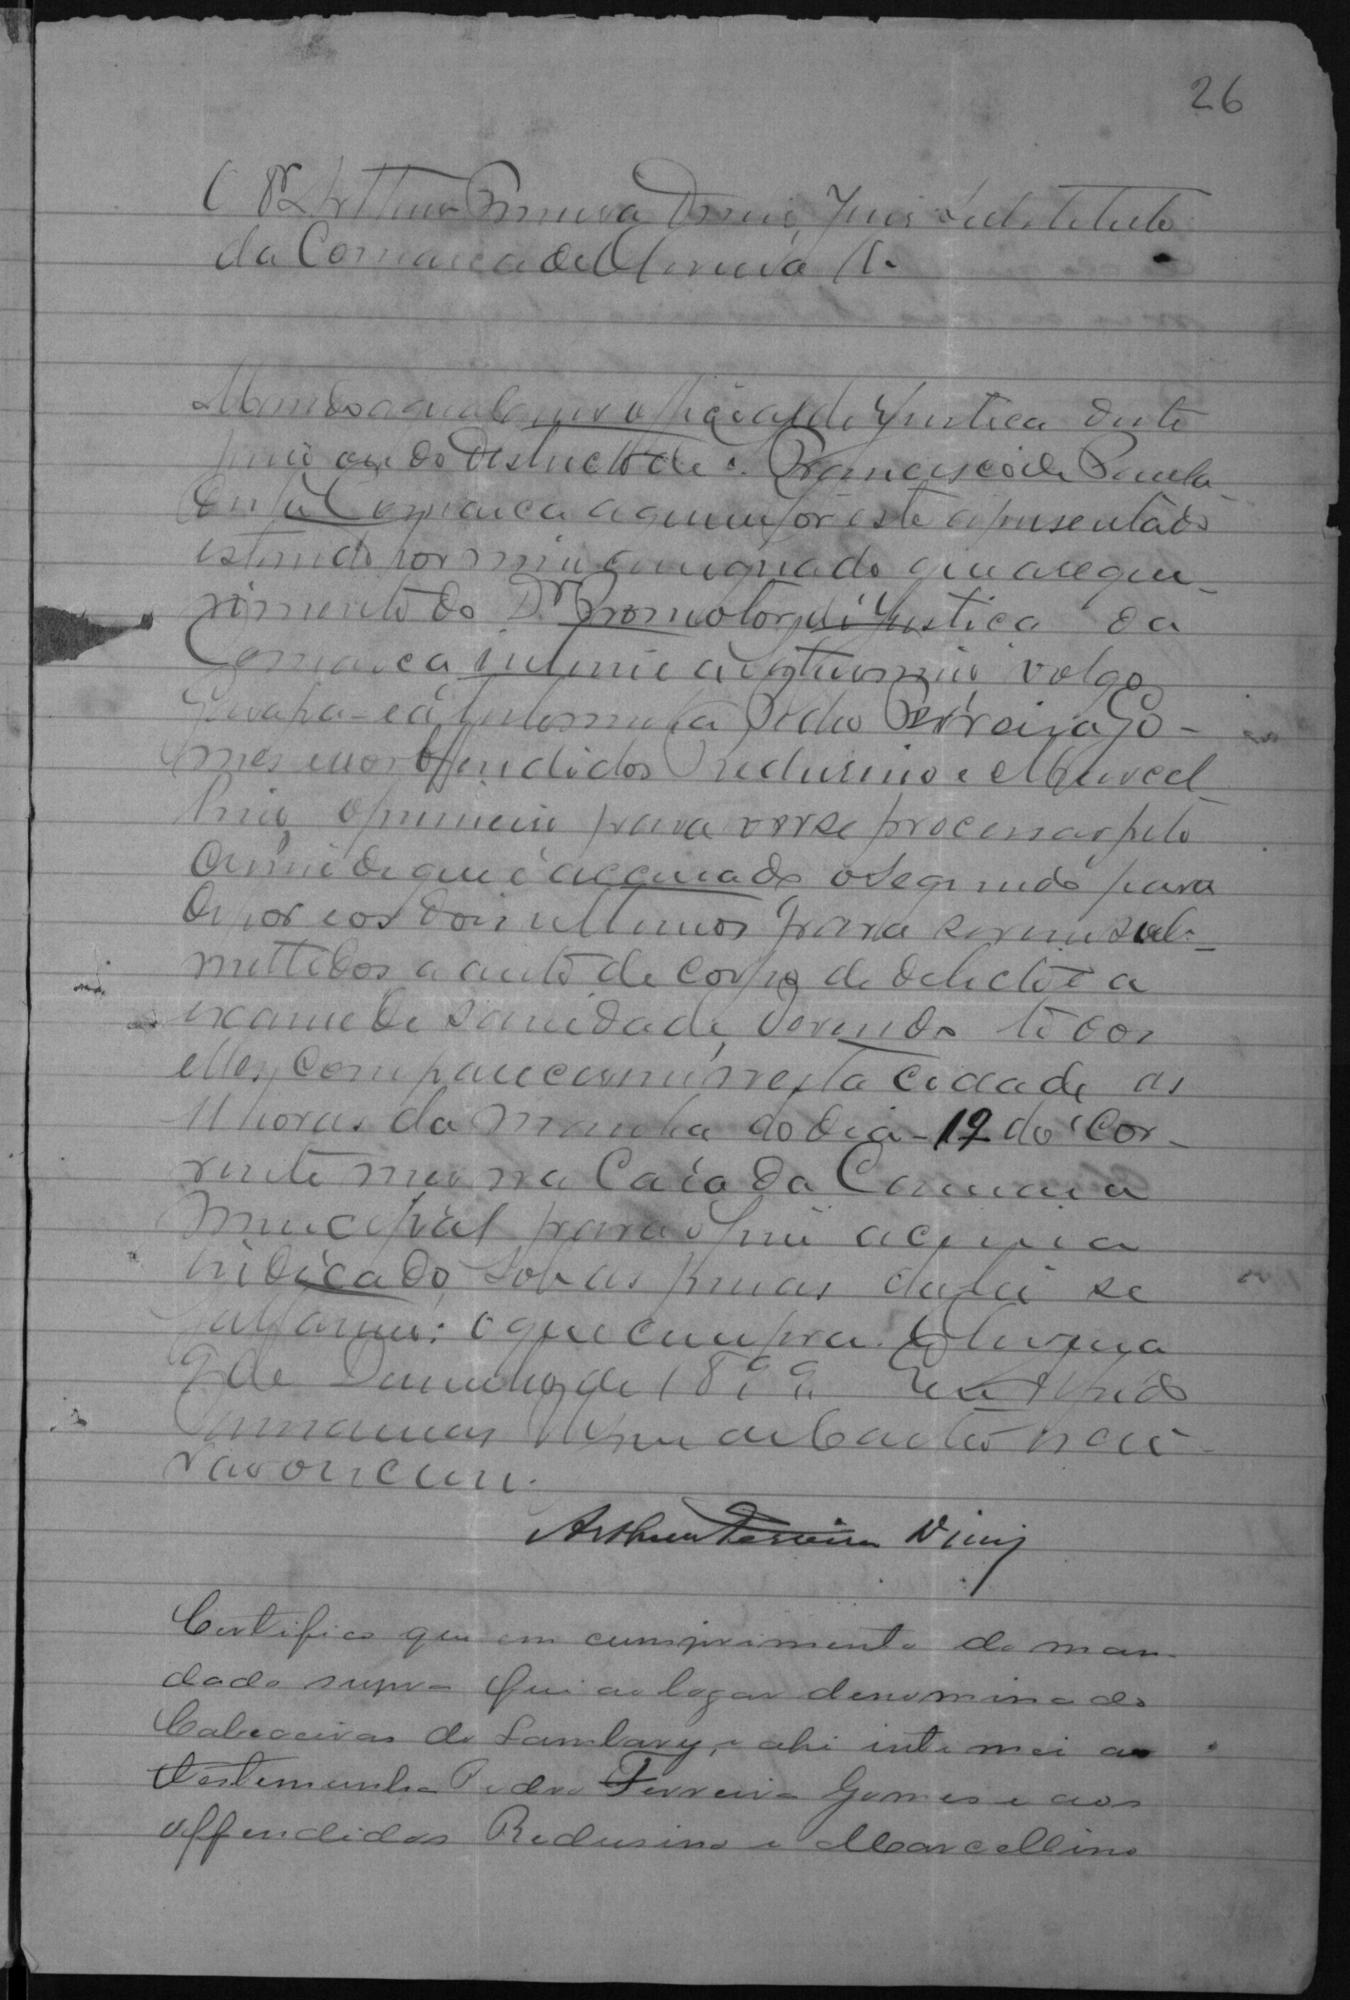 26
O Dr. Arthur Ferreira Diniz, Juiz Substituto
da Comarca de Oliveira &.
Mando a qualquer official de Justica deste
juizo ou do Districto de S. Francisco de Paula
desta Comarca a quem for este apresentado
estando por mim assignado que a reque-
rimento do Dr. Promotor de Justica da
Comarca intime a vulgo
a testemunha Pedro Ferreira Go-
mes e aos offendidos Redusino e Marcel-
lino, o primeiro para ver se processar pelo
crime de que é accusado o segundo para
depor e os dois ultimos para serem sub-
mettidos a auto de corpo de delicto e a
exame de sanidade, devendo todos
elles, comparecerem nesta cidade as
11 horas da manha do dia 12 do cor-
rente mez na Casa da Camara
Municipal para o fim acima
indicado, sob as penas da lei se
faltarem; o que cumpra. Oliveira
9 de de 1899. Eu
escri-
vao o escrevi.
Arthur Ferreira Diniz
Certifico que em cumprimento do man-
dado supra fui ao logar denominado
Cabeceiras do Lambary, e ahi intimei a
testemunha Pedro Ferreira Gomes e aos
offendidos Redusino e Marcellino